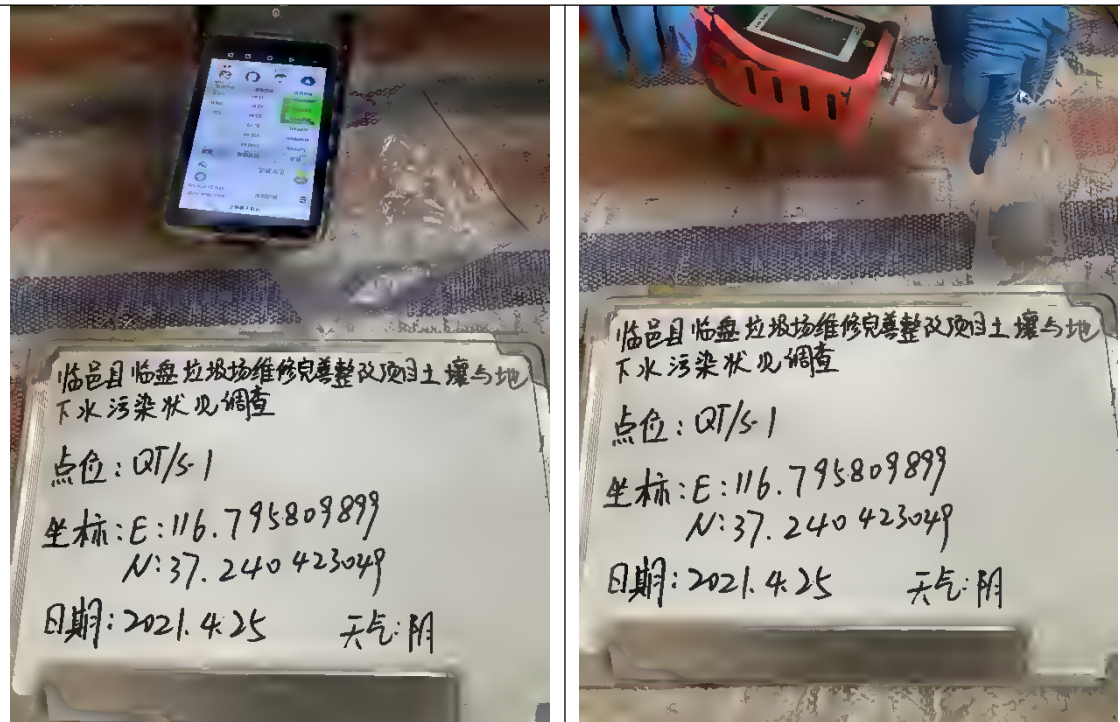 临邑县临盘垃圾场维修完善整改项目土壤与地
下水污染状况调查
点位：QT/S-1
坐标：E：116.795809899
N：37.240423049
日期：2021.4.25 天气：阴
临邑县临盘垃圾场维修完善整改项目土壤与地
下水污染状况调查
点位：QT/S-1
坐标：E：116.795809899
N：37.240423049
日期：2021.4.25 天气：阴